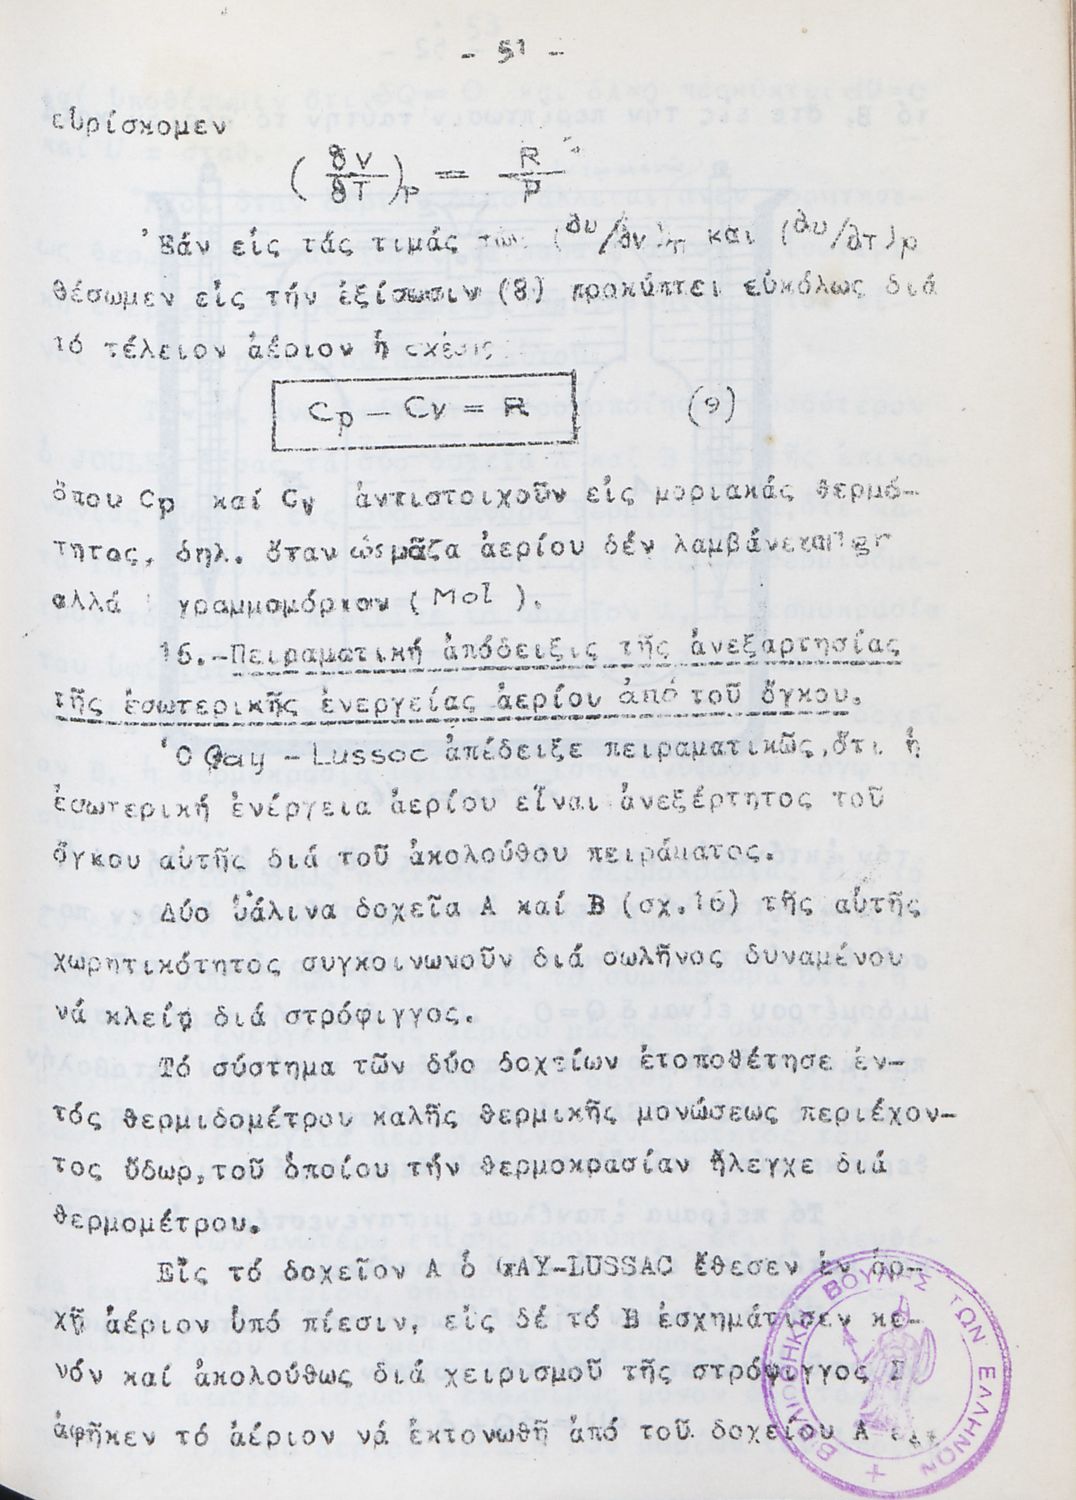 - 51 -
εὑρίσκομεν
(∂V/∂T)p = R/P
Ἐάν εἰς τάς τιμάς τῶν (∂υ/∂v)T και (∂υ/∂T)p
θέσωμεν εἰς τήν ἐξίσωσιν (8) προκύπτει εὐκόλως διά
τό τέλειον ἀέριον ἡ σχέσις
Cp – Cv = R (9)
ὅπου Cp καί Cv ἀντιστοιχοῦν εἰς μοριακάς θερμό-
τητας, δηλ. ὅταν ὡς μᾶζα ἀερίου δέν λαμβάνεται 1 gr
αλλά 1 γραμμομόριον (Mol).
16.-Πειραματική ἀπόδειξις τῆς ἀνεξαρτησίας
τῆς ἐσωτερικῆς ἐνεργείας ἀερίου ἀπό τοῦ ὄγκου.
Ὁ Gay - Lussac ἀπέδειξε πειραματικῶς, ὅτι ἡ
ἐσωτερική ἐνέργεια ἀερίου εἶναι ἀνεξέρτητος τοῦ
ὄγκου αὐτῆς διά τοῦ ἀκολούθου πειράματος.
Δύο ὑάλινα δοχεῖα Α καί Β (σχ.16) τῆς αὐτῆς
χωρητικότητος συγκοινωνοῦν διά σωλῆνος δυναμένου
νά κλείσῃ διά στρόφιγγος.
Τό σύστημα τῶν δύο δοχείων ἐτοποθέτησε ἐν-
τός θερμιδομέτρου καλῆς θερμικῆς μονώσεως περιέχον-
τος ὕδωρ, τοῦ ὁποίου τήν θερμοκρασίαν ἤλεγχε διά
θερμομέτρου.
Εἰς τό δοχεῖον Α ὁ GAY-LUSSAC ἔθεσεν ἐν ἀρ-
χῇ ἀέριον ὑπό πίεσιν, εἰς δέ τό Β ἐσχημάτισεν κε-
νόν καί ἀκολούθως διά χειρισμοῦ τῆς στρόφιγγος Σ
ἀφῆκεν τό ἀέριον νά ἐκτονωθῆ ἀπό τοῦ δοχείου Α εἰς
ΒΙΒΛΙΟΘΗΚΗ ΒΟΥΛΗΣ ΤΩΝ ΕΛΛΗΝΩΝ